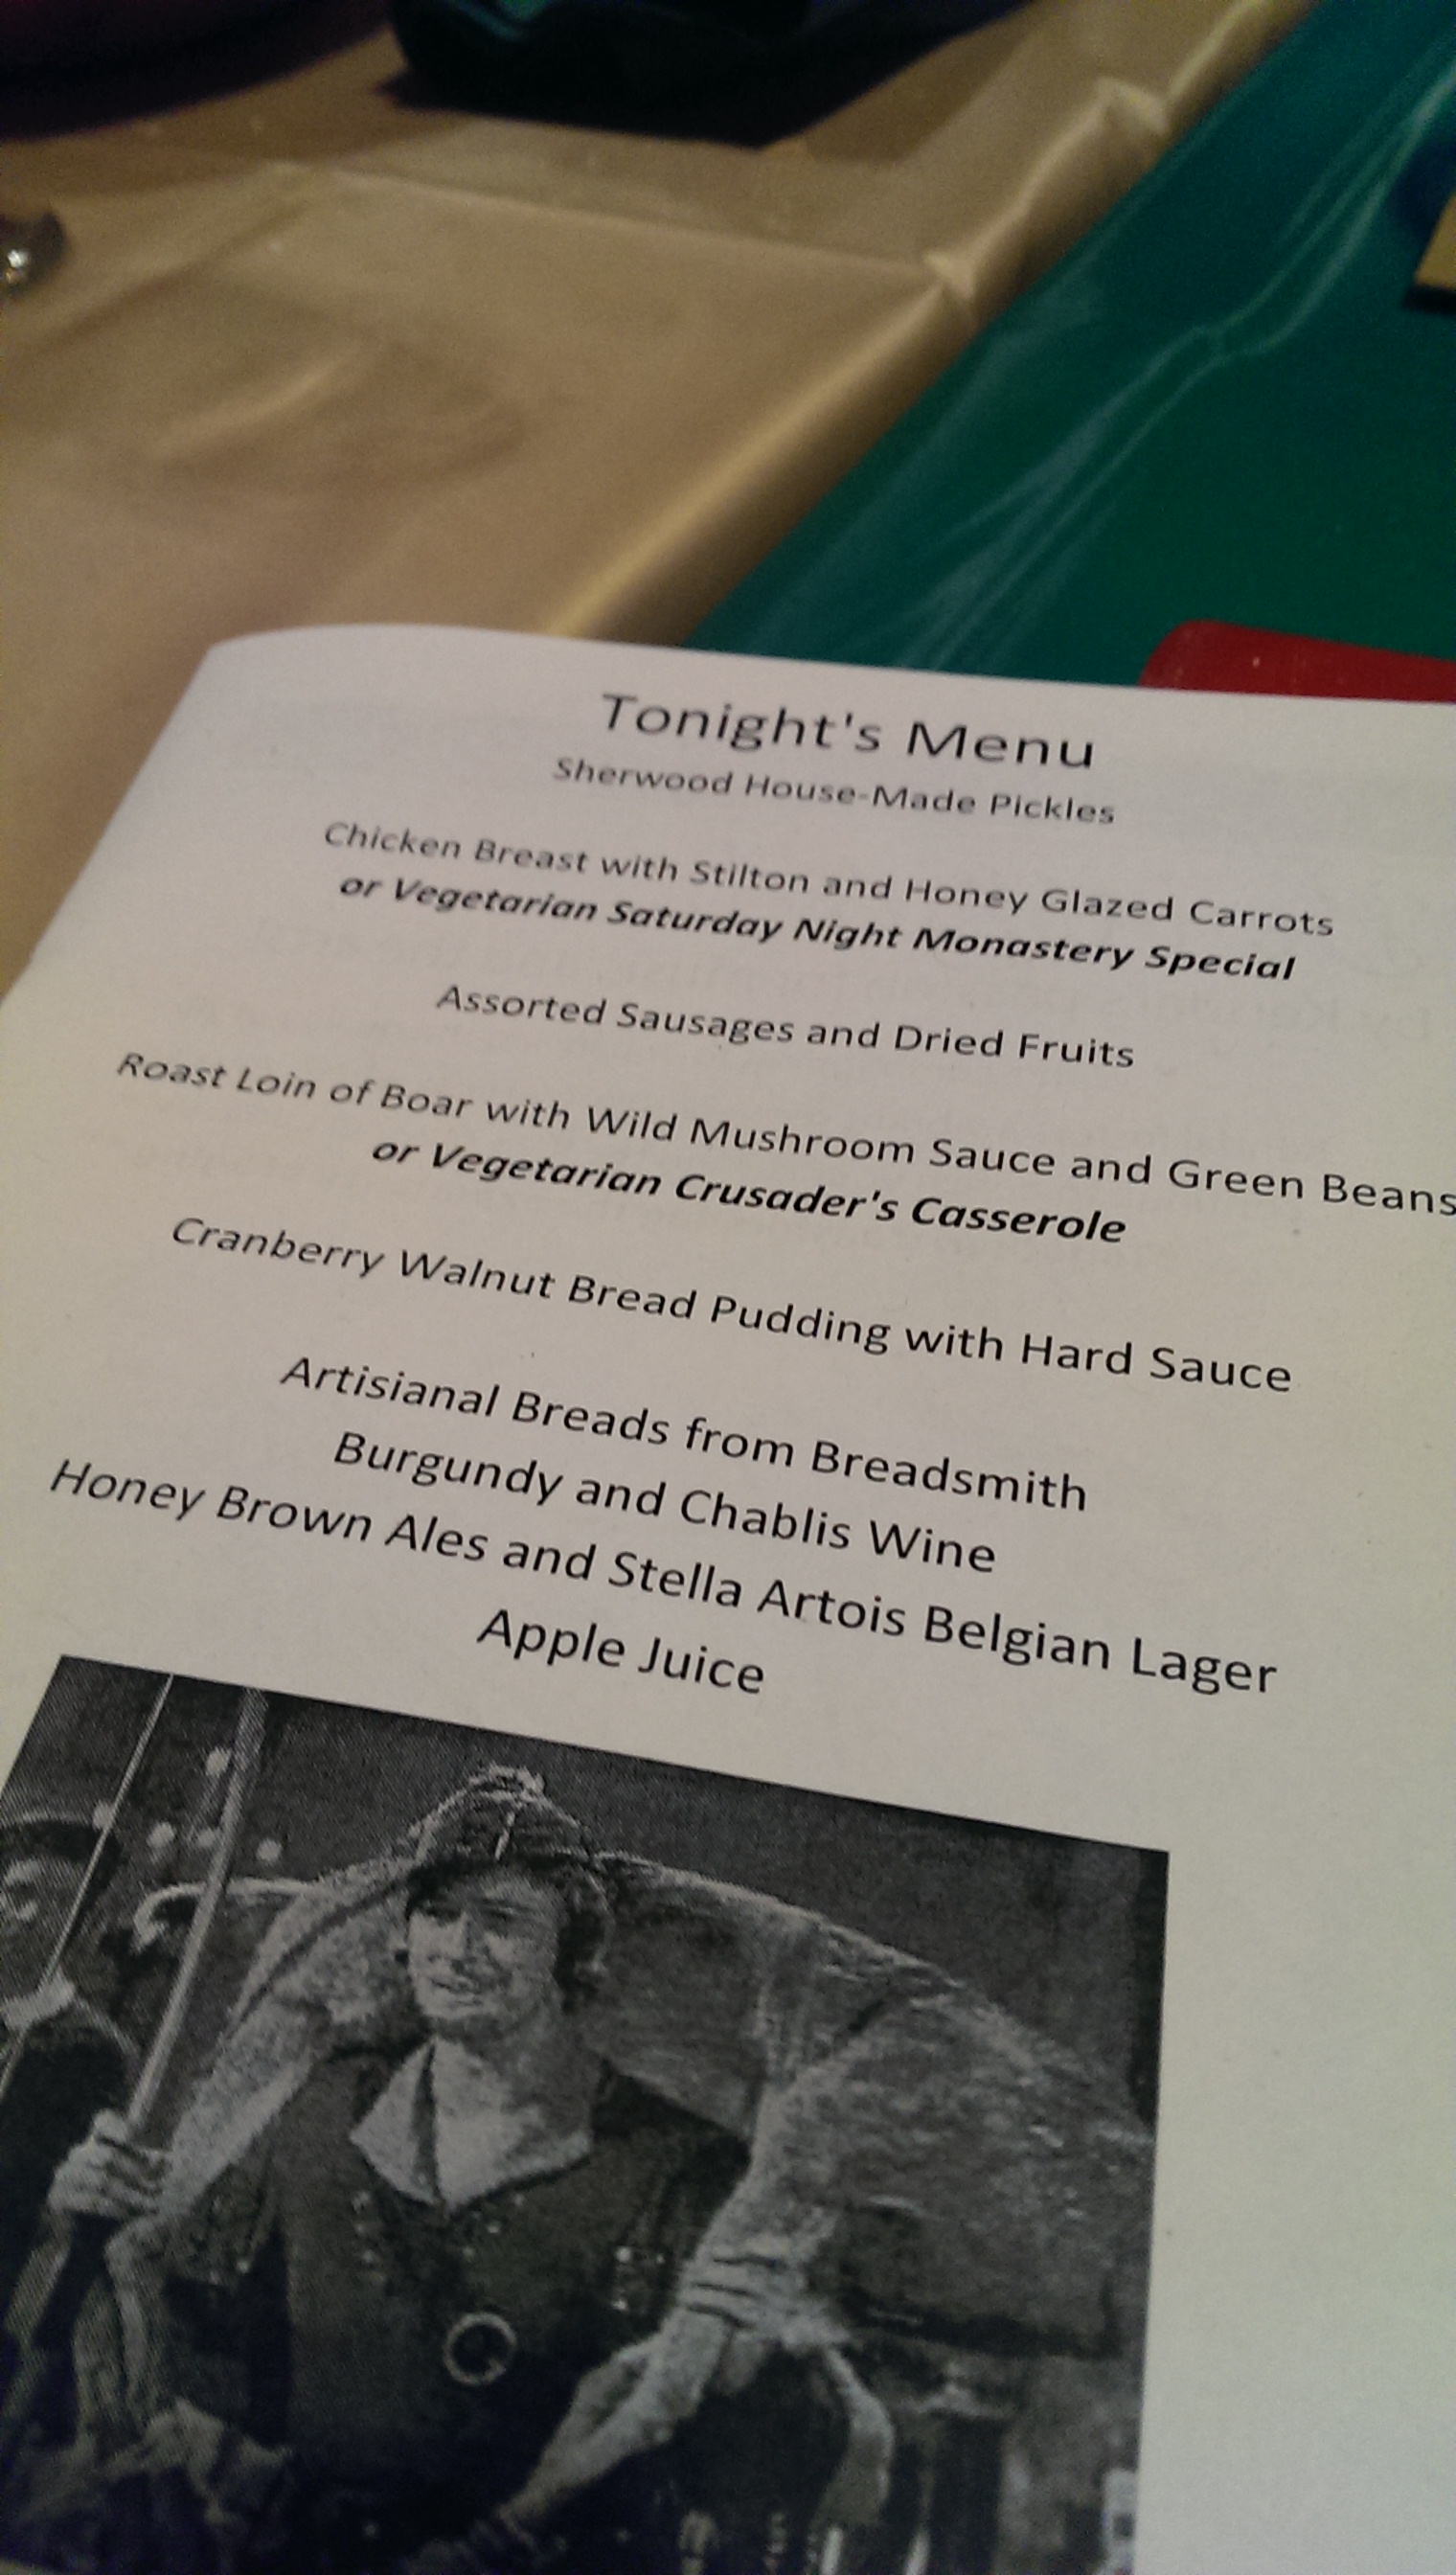 Tonight's Menu
Sherwood House-Made Pickles
Chicken Breast with Stilton and Honey Glazed Carrots
or Vegetarian Saturday Night Monastery Special
Assorted Sausages and Dried Fruits
Roast Loin of Boar with Wild Mushroom Sauce and Green Beans
or Vegetarian Crusader's Casserole
Cranberry Walnut Bread Pudding with Hard Sauce
Artisianal Breads from Breadsmith
Burgundy and Chablis Wine
Honey Brown Ales and Stella Artois Belgian Lager
Apple Juice